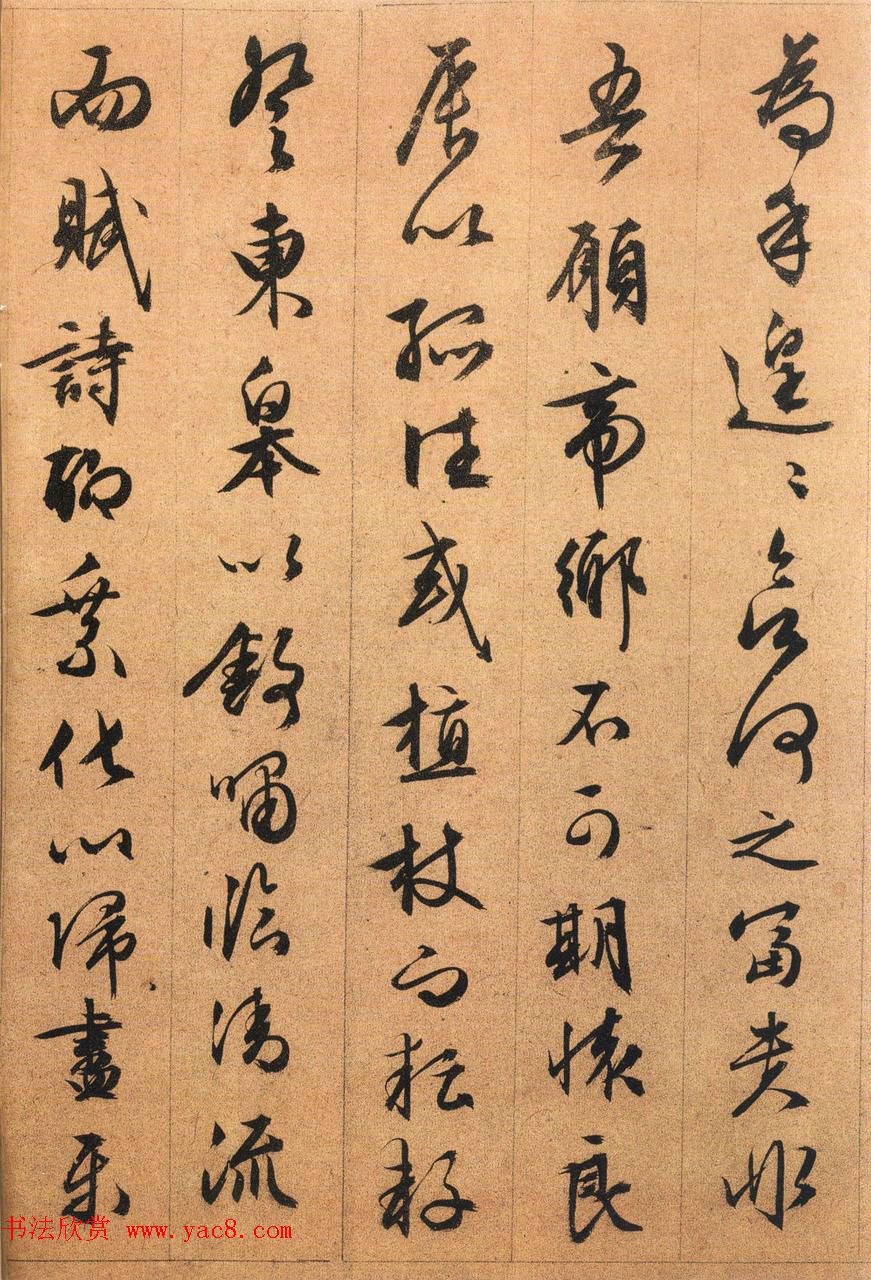 為乎遑々欲何之富貴非
吾願帝鄉不可期懷良
辰以孤往或植杖而耘耔
登東皋以舒嘯臨清流
而賦詩聊乘化以歸盡樂
书法欣赏 www.yac8.com